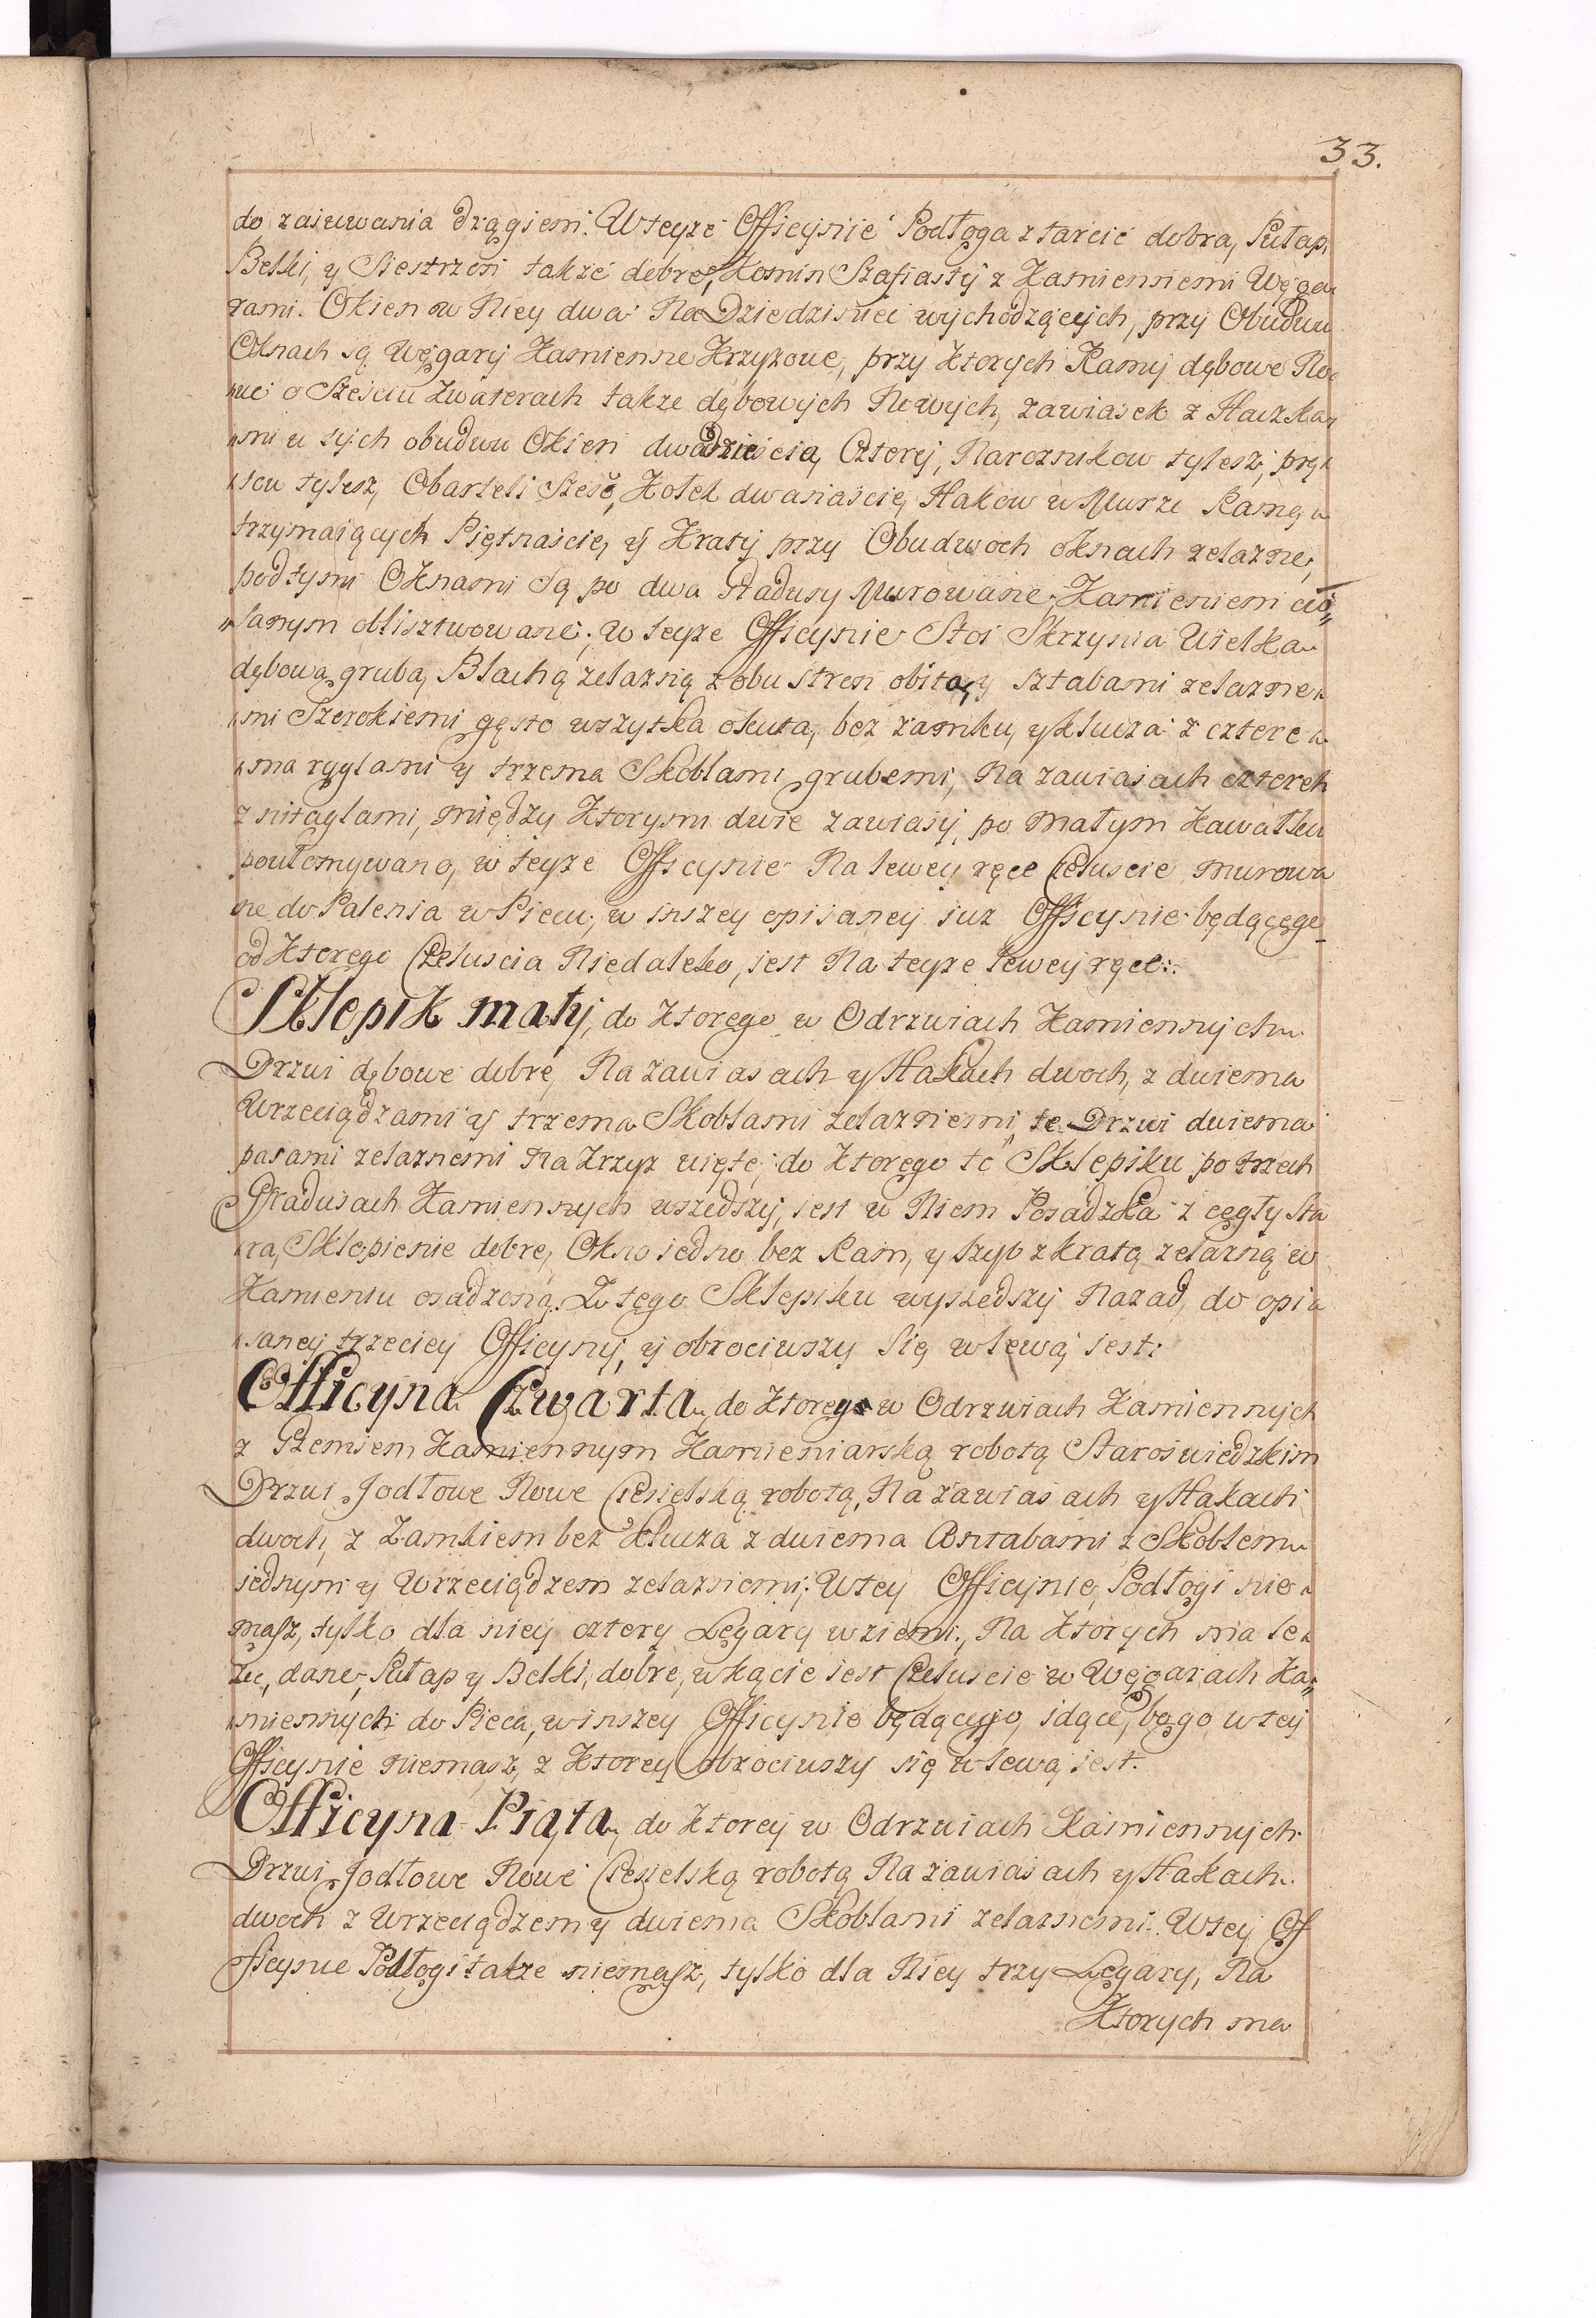 33.
do zasuwania drągiem. W teyże Officynie Podłoga z tarcic dobra, Pułap,
Belki, y Siestrzen także dobre, Komin Szafiasty z Kamiennemi Węga„
rami. Okien w Niey dwa Na Dziedziniec wychodzących, przy Obudwu
Oknach są Węgary Kamienne Krzyżowe, przy Ktorych Ramy dębowe No„
„we o Sześciu Kwaterach także dębowych Nowych, zawiasek z Haczka„
„mi u tych obudwu Okien dwadzieścia Cztery, Narożnikow tylesz, prę„
„tow tylesz, Obarteli Sześć, Kołek dwanaście, Hakow w Murze Ramy„
trzymaiących Piętnaście, y Kraty przy Obudwoch oknach żelazne,
pod tymi Oknami są po dwa Gradusy Murowane, Kamieniem cio„
„sanym oblisztwowane; w teyże Officynie Stoi Skrzynia Wielka
dębowa gruba, Blachą żelazną z obu stron obita, y sztabami żelazne„
„mi Szerokiemi gęsto wszytka okuta, bez zamku, y klucza z cztere„
„ma ryglami y trzema Skoblami grubemi, Na zawiasach czterech
z nitaglami, między Ktorymi dwie zawiasy, po małym Kawałku
poułomywano, w teyże Officynie Na lewey ręce Czeluscie murowa
ne do Palenia w Piecu, w inszey opisaney iuz Officynie będącego
od Ktorego Czeluscia Niedaleko, iest Na teyże lewey ręce:
Sklepik mały, do Ktorego w Odrzwiach Kamiennych
Drzwi dębowe dobre, Na zawiasach y Hakach dwoch, z dwiema
Wrzeciądzami y trzema Skoblami żelaznemi, te Drzwi dwiema
pasami żelaznemi Na Krzyż uięte; do Ktorego to Sklepiku po trzech
Gradusach Kamiennych wszedszy, iest w Niem Posadzka z cegły sta
„ra, Sklepienie dobre, Okno iedno bez Ram, y szyb z kratą żelazną w
Kamieniu osadzoną. Z tego Sklepiku wyszedszy Nazad, do opi„
„saney trzeciey Officyny, y obrociwszy się w lewą iest:
Officyna Czwarta, do Ktorego w Odrzwiach Kamiennych
z Gzemsem Kamiennym Kamieniarską robotą Staroswiedzkim
Drzwi Jodłowe Nowe Ciesielską robotą, Na zawiasach y Hakach
dwoch, z Zamkiem bez Klucza z dwiema Antabami z Skoblem
iednym y Wrzeciądzem żelaznemi; W tey Officynie, Podłogi nie„
masz, tylko dla niey cztery Legary w ziemi, Na Ktorych ma le„
żec, dane, Pułap y Belki, dobre, w kącie iest Czeluscie w Węgarach Ka„
„miennych do Pieca, w inszey Officynie będącego, idące, bo go w tey
Officynie niemasz, z Ktorey obrociwszy się w lewą iest.
Officyna Piąta, do Ktorey w Odrzwiach Kamiennych
Drzwi Jodłowe Nowe Ciesielską robotą Na zawiasach y Hakach
dwoch z Wrzeciądzem y dwiema Skoblami żelaznemi. W tey Of
ficynie Podłogi także niemasz, tylko dla Niey trzy Legary, Na
Ktorych ma